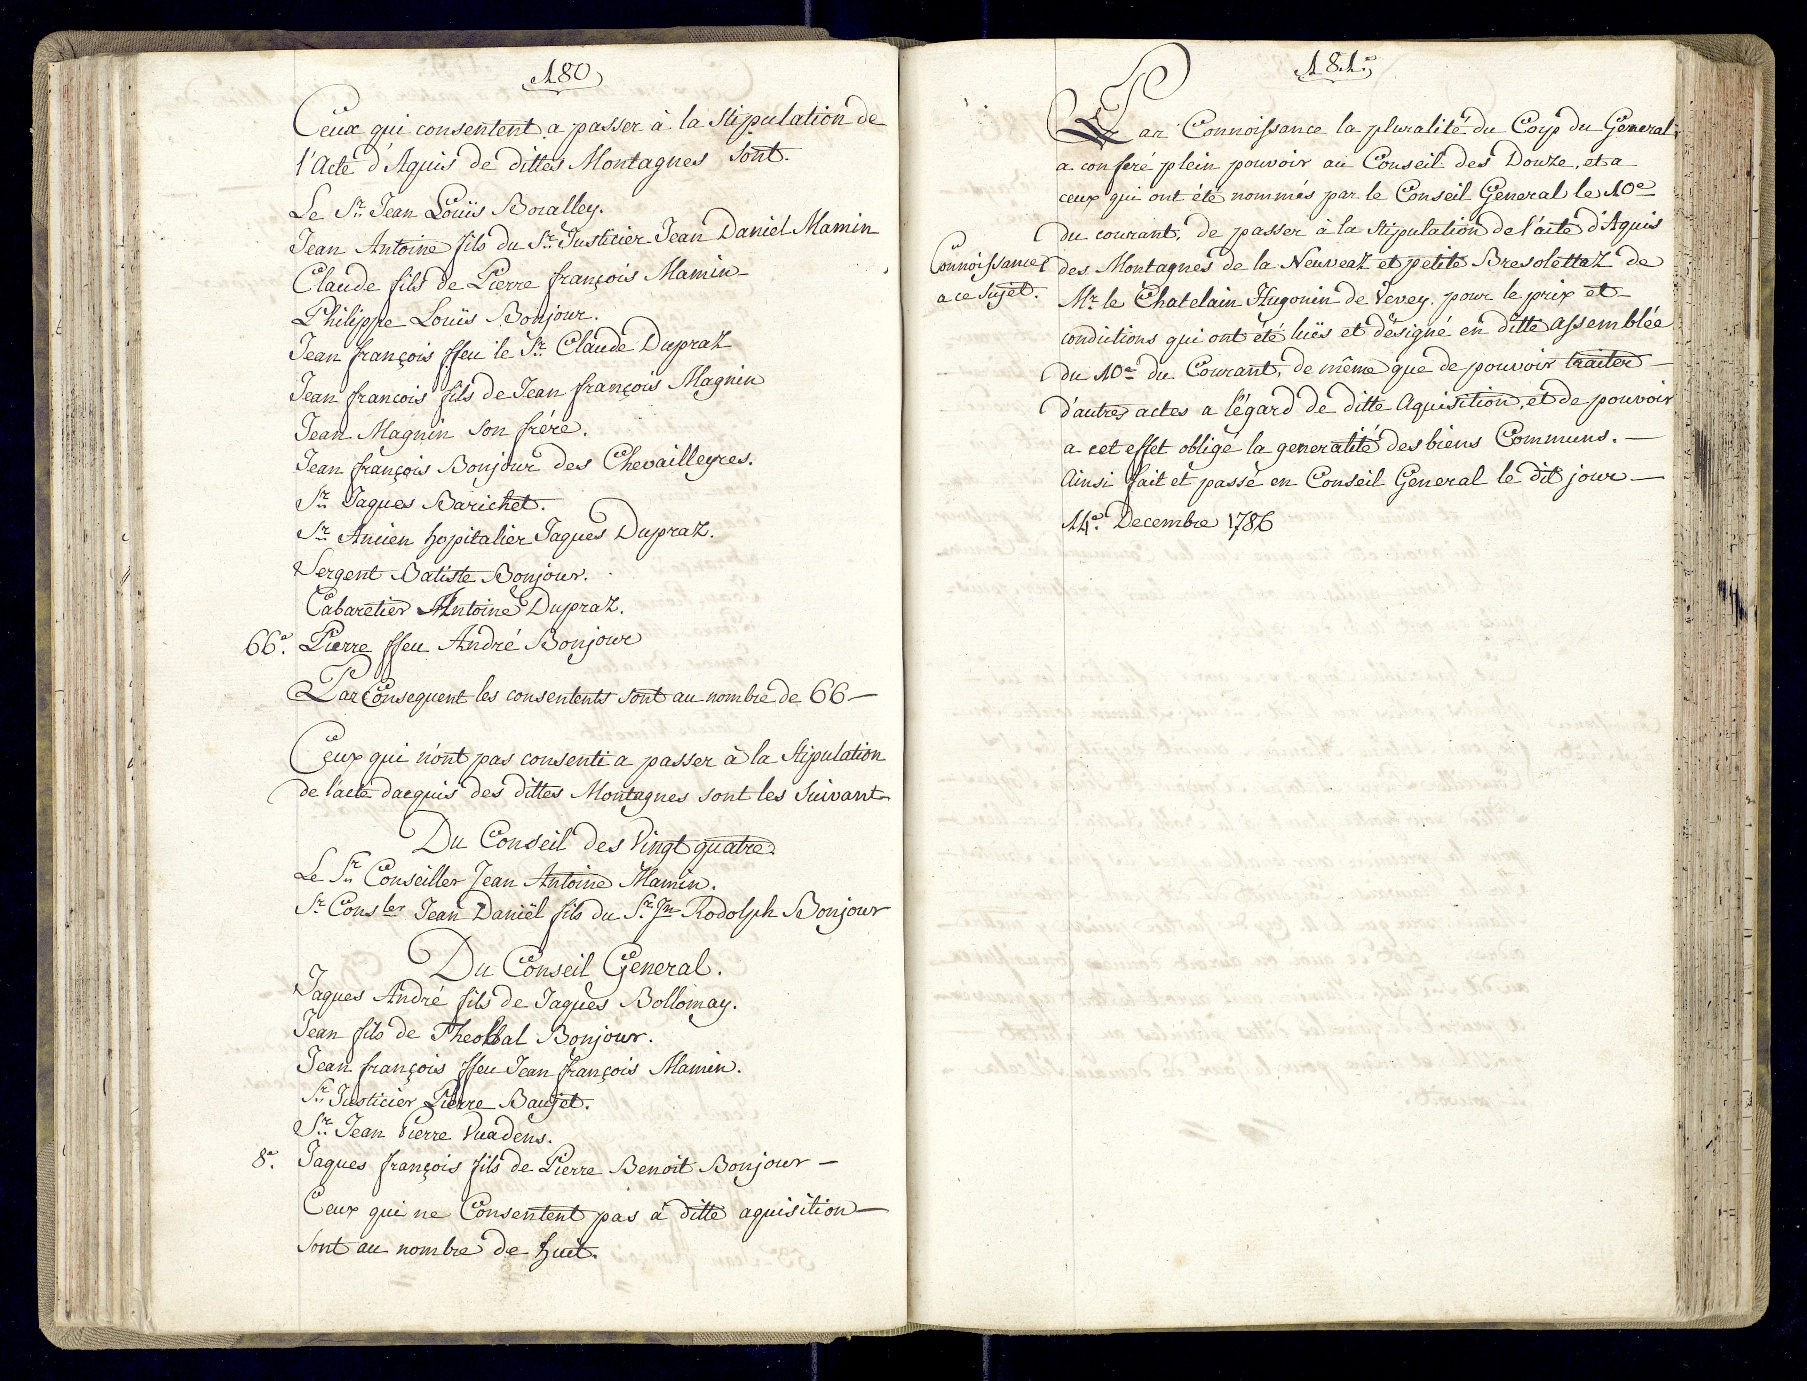 180
Ceux qui consentent a passer à la Stipulation de
l'Acte d'Aquis de dittes Montagnes sont.
Le Sr. Jean Louïs Boralley.
Jean Antoine fils du Sr. Justicier Jean Daniel Mamin
Claude fils de Pierre françois Mamin
Philippe Louïs Bonjour.
Jean françois ffeu le Sr. Claude Dupraz
Jean francois fils de Jean françois Magnin
Jean Magnin son frére.
Jean françois Bonjour des Chevailleyres.
Sr. Jaques Barichet.
Sr. Ancien hopitalier Jaques Dupraz.
Sergent Batiste Bonjour.
Cabaretier Antoine Dupraz.
66e. Pierre ffeu André Bonjour
Par Consequent les consentents sont au nombre de 66 —
Ceux qui n'ont pas consenti a passer à la Stipulation
de l'acte dacquis des dittes Montagnes sont les Suivant
Du Conseil des Vingt quatre.
Le Sr. Conseiller Jean Antoine Mamin.
Sr. Consler Jean Daniël fils du Sr. Jn Rodolph Bonjour
Du Conseil General.
Jaques André fils de Jaques Bollomay.
Jean fils de Theobal Bonjour.
Jean françois ffeu Jean françois Mamin.
Sr. Justicier Pierre Baujet.
Sr. Jean Pierre Vuadens.
8e. Jaques françois fils de Pierre Benoit Bonjour —
Ceux qui ne Consentent pas à ditte aquisition —
sont au nombre de huit.
181e
Par Connoissance la pluralité du Corp du General
a conferé plein pouvoir au Conseil des Douze, et a
ceux qui ont été nommés par le Conseil General le 10e
du courant, de passer à la Stipulation de l'acte d'Aquis
Connoissance
a ce Sujet.
des Montagnes de la Neuveaz et petite Bresolettaz de
Mr. le Chatelain Hugonin de Vevey, pour le prix et
conditions qui ont été luës et designé en ditte assemblée
du 10e du Courant, de même que de pouvoir traiter —
d'autres actes a l'égard de ditte Aquisition, et de pouvoir
a cet effet obligé la generalité des biens Communs. —
Ainsi fait et passé en Conseil General le dit jour —
14e. Decembre 1786